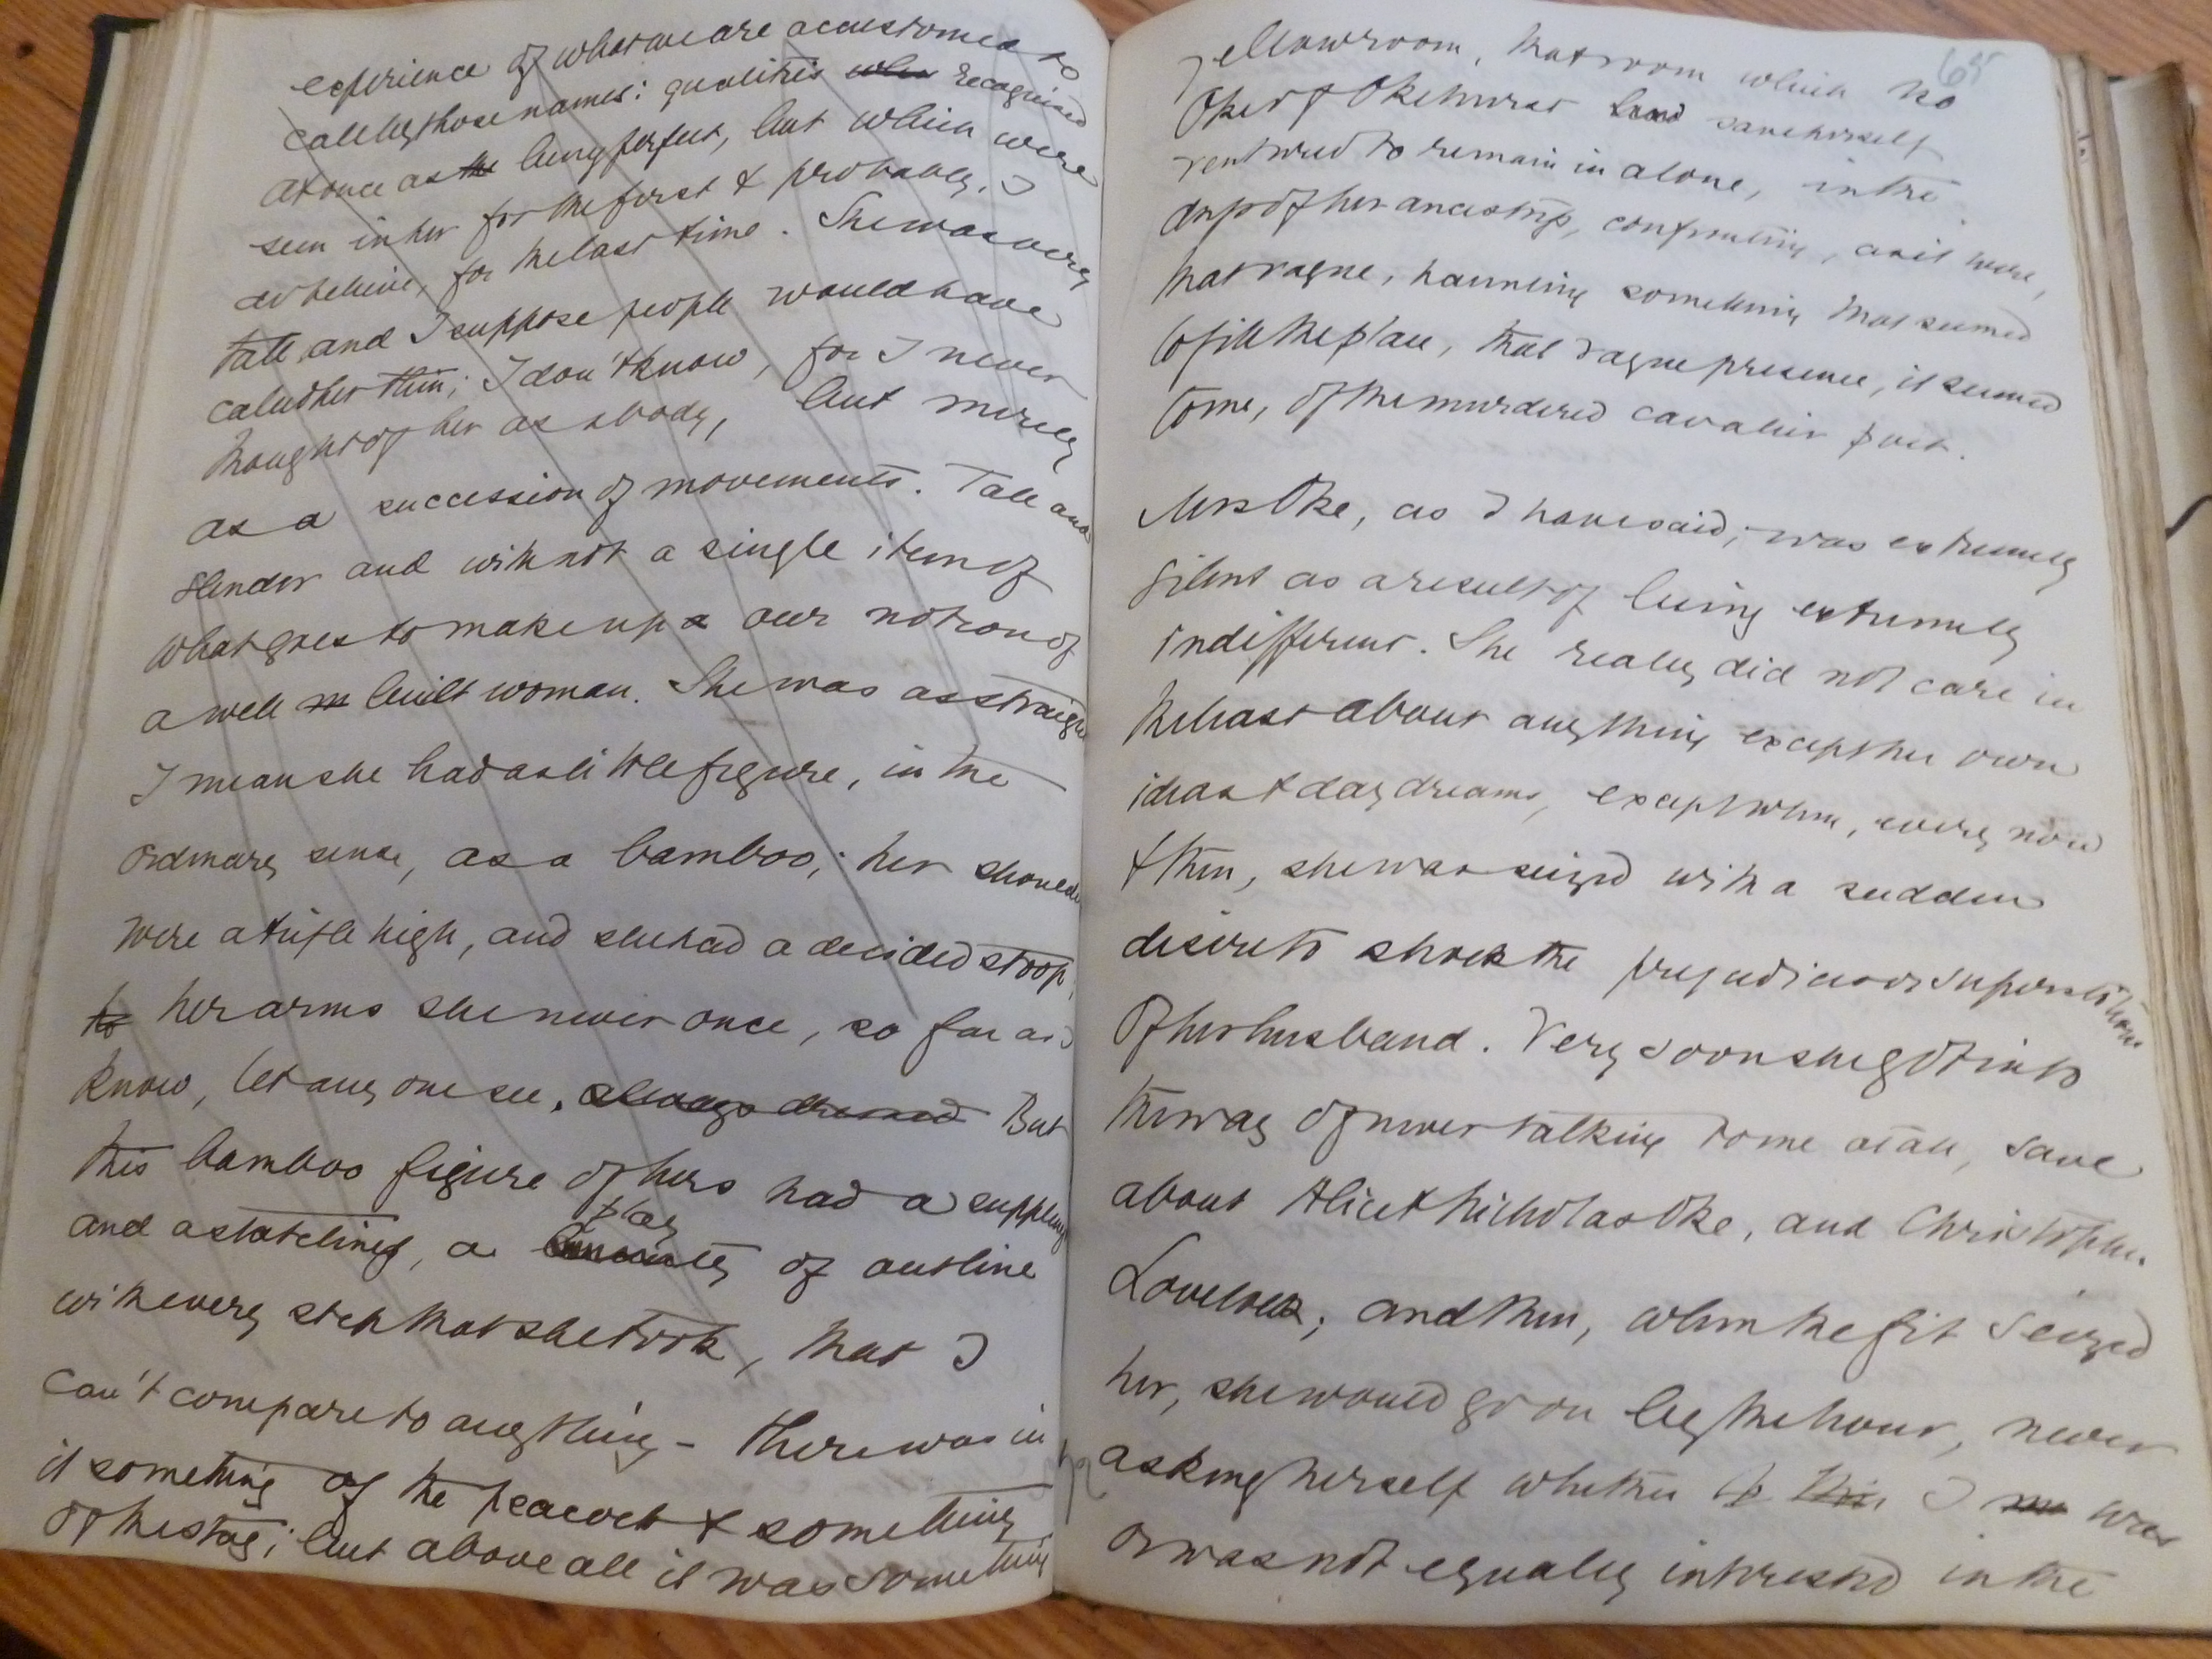 experience of what we are accustomed to
call by those names: qualities when recognised
at once as the being perfect, but which were
seen in her for the first & probably, I
do believe, for the last time. She was very
tall and I suppose people would have
called her thin; I don't know, for I never
thought of her as a body, but merely
as a succession of movements. Tall and
slender and with not a single item of
what goes to make up a our notion of
a well m built woman. She was as straight
I mean she had as little figure, in the
ordinary sense, as a bamboo; her shoulders
were a trifle high, and she had a decided stoop;
to her arms she never once, so far as I
know, let any one see. always dressed But
this bamboo figure of hers had a suppleness
play
and a stateliness, a of outline
with every step that she took, that I
can't compare to anything - there was in
it something of the peacock & something
of the stag; but above all it was something
65
yellow room, that room which no
Oke of Okehurst had save herself
ventured to remain in alone, in the
dress of her ancestress, confronting, as it were,
that vague, haunting something that seemed
to fill the place, that vague presence, it seemed
to me, of the murdered cavalier poet.
Mrs Oke, as I have said, was extremely
silent as a result of being extremely
indifferent. She really did not care in
the least about anything except her own
ideas & day dreams, except when, every now
& then, she was seized with a sudden
desire to shock the prejudices or superstitions
of her husband. Very soon she got into
the way of never talking to me at all, save
about Alice & Nicholas Oke, and Christopher
Lovelock; and then, when the fit seized
her, she would go on by the hour, never
asking herself whether I was
or was not equally interested in the